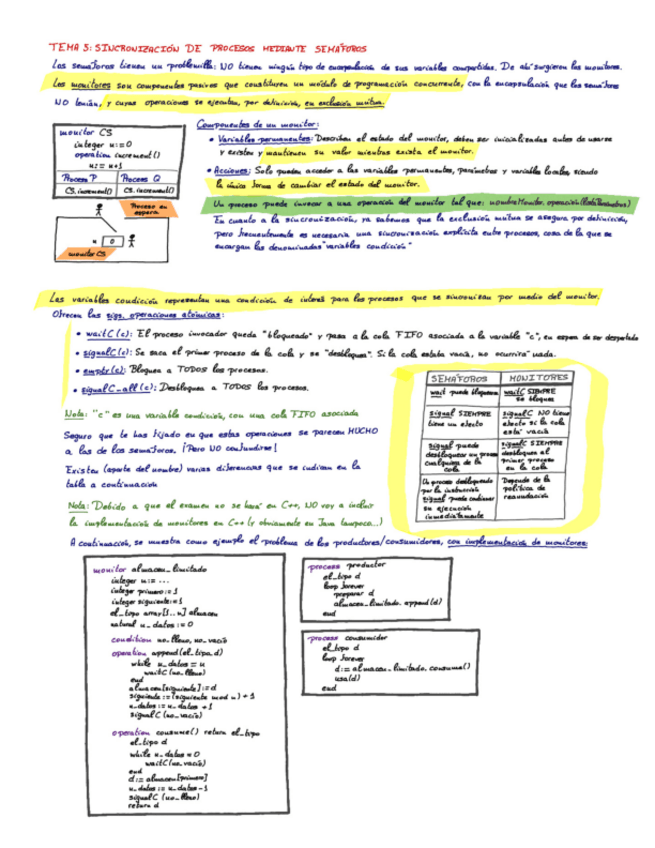 TEMA 5: SINCRONIZACIÓN DE PROCESOS MEDIANTE SEMÁFOROS
Los semáforos tienen un problemilla: NO tienen ningún tipo de encapsulación de sus variables compartidas. De ahí surgieron los monitores.
Los monitores son componentes pasivos que constituyen un módulo de programación concurrente, con la encapsulación que los semáforos
NO tenían, y cuyas operaciones se ejecutan, por definición, en exclusión mutua.
monitor CS
integer n:=0
operation increment()
n:= n+1
Process P
Process Q
CS.increment()
CS.increment()
Proceso en
espera
n
0
monitor CS
Componentes de un monitor:
• Variables permanentes: Describen el estado del monitor, deben ser inicializadas antes de usarse
y existen y mantienen su valor mientras exista el monitor.
• Acciones: Solo pueden acceder a las variables permanentes, parámetros y variables locales, siendo
la única forma de cambiar el estado del monitor.
Un proceso puede invocar a una operación del monitor tal que: nombreMonitor.operación(listaParámetros)
En cuanto a la sincronización, ya sabemos que la exclusión mutua se asegura por definición,
pero frecuentemente es necesaria una sincronización explícita entre procesos, cosa de la que se
encargan las denominadas "variables condición"
Las variables condición representan una condición de interés para los procesos que se sincronizan por medio del monitor.
Ofrecen las sigs. operaciones atómicas:
• waitC(c): El proceso invocador queda "bloqueado" y pasa a la cola FIFO asociada a la variable "c", en espera de ser despertado
• signalC(c): Se saca el primer proceso de la cola y se "desbloquea". Si la cola estaba vacía, no ocurrirá nada.
• empty(c): Bloquea a TODOS los procesos.
• signalC_all(c): Desbloquea a TODOS los procesos.
Nota: "c" es una variable condición, con una cola FIFO asociada
Seguro que te has fijado en que estas operaciones se parecen MUCHO
a las de los semáforos. ¡Pero NO confundirse!
Existen (aparte del nombre) varias diferencias que se indican en la
tabla a continuación
SEMÁFOROS
MONITORES
wait puede bloquear
waitC SIEMPRE
se bloquea
signal SIEMPRE
tiene un efecto
signalC NO tiene
efecto si la cola
está vacía
signal puede
desbloquear un proceso
cualquiera de la
cola
signalC SIEMPRE
desbloquea al
primer proceso
en la cola
Un proceso desbloqueado
por la instrucción
signal puede continuar
su ejecución
inmediatamente
Depende de la
política de
reanudación
Nota: Debido a que el examen no se hará en C++, NO voy a incluir
la implementación de monitores en C++ (y obviamente en Java tampoco...)
A continuación, se muestra como ejemplo el problema de los productores/consumidores, con implementación de monitores:
monitor almacen_limitado
integer n:= ...
integer primero:=1
integer siguiente:=1
el_tipo array[1..n] almacen
natural n_datos:=0
condition no_lleno, no_vacio
operation append(el_tipo d)
while n_datos = n
waitC(no_lleno)
end
almacen[siguiente]:=d
siguiente:=(siguiente mod n)+1
n_datos:= n_datos +1
signalC(no_vacio)
operation consume() return el_tipo
el_tipo d
while n_datos = 0
waitC(no_vacio)
end
d:= almacen[primero]
n_datos:= n_datos-1
signalC(no_lleno)
return d
process productor
el_tipo d
loop forever
preparar d
almacen_limitado.append(d)
end
process consumidor
el_tipo d
loop forever
d:= almacen_limitado.consume()
usa(d)
end